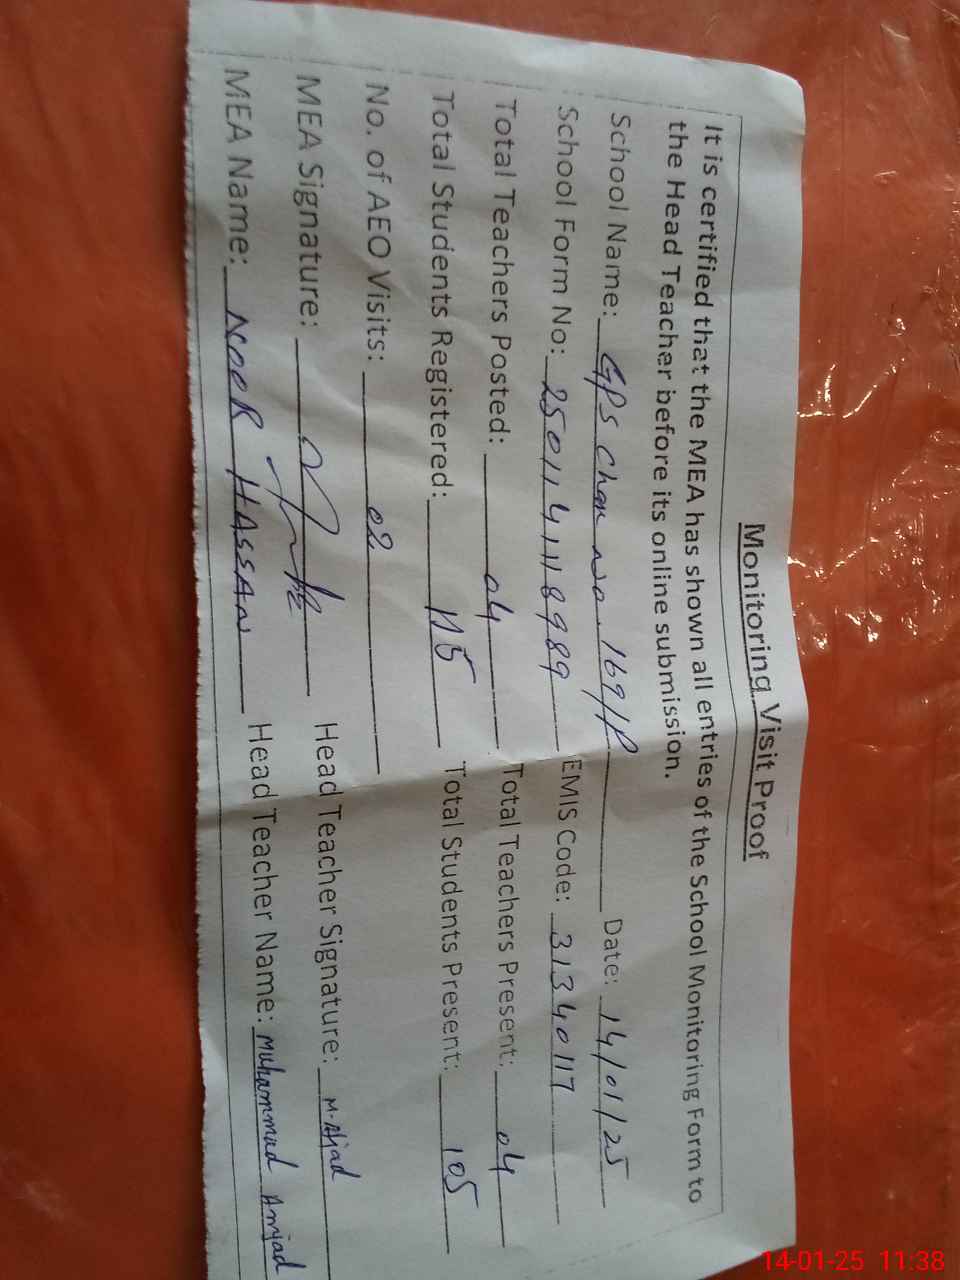 Monitoring Visit Proof
It is certified that the MEA has shown all entries of the School Monitoring Form to
the Head Teacher before its online submission.
School Name: GPS Chak No. 169/P Date: 14/01/25
School Form No: 2501141118989 EMIS Code: 31340117
Total Teachers Posted: 04 Total Teachers Present: 04
Total Students Registered: 115 Total Students Present: 105
No. of AEO Visits: 02
MEA Signature: Head Teacher Signature: M. Amjad
MEA Name: NOOR HASSAN Head Teacher Name: Muhammad Amjad
14-01-25 11:38